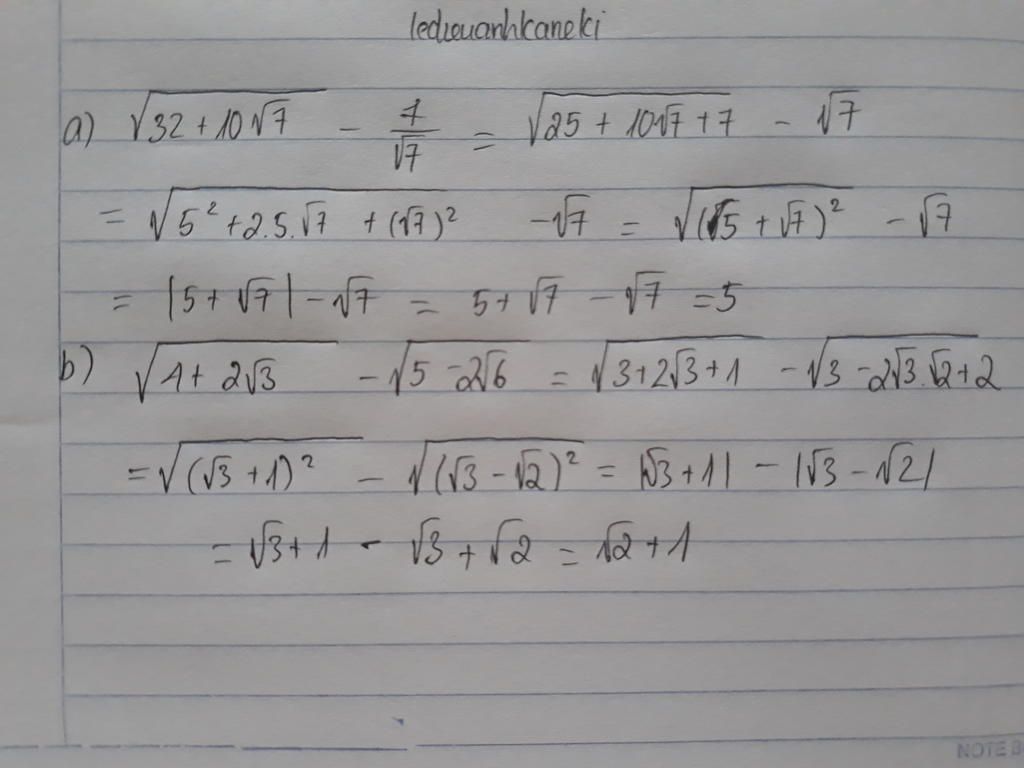 leduuanhkaneki
a) √(32 + 10√7) - 7/√7 = √(25 + 10√7 + 7) - √7
= √(5² + 2.5.√7 + (√7)²) - √7 = √((5 + √7)²) - √7
= |5 + √7| - √7 = 5 + √7 - √7 = 5
b) √(1 + 2√3) - √(5 - 2√6) = √(3 + 2√3 + 1) - √(3 - 2√3.√2 + 2)
= √((√3 + 1)²) - √((√3 - √2)²) = |√3 + 1| - |√3 - √2|
= √3 + 1 - √3 + √2 = √2 + 1
NOTE B